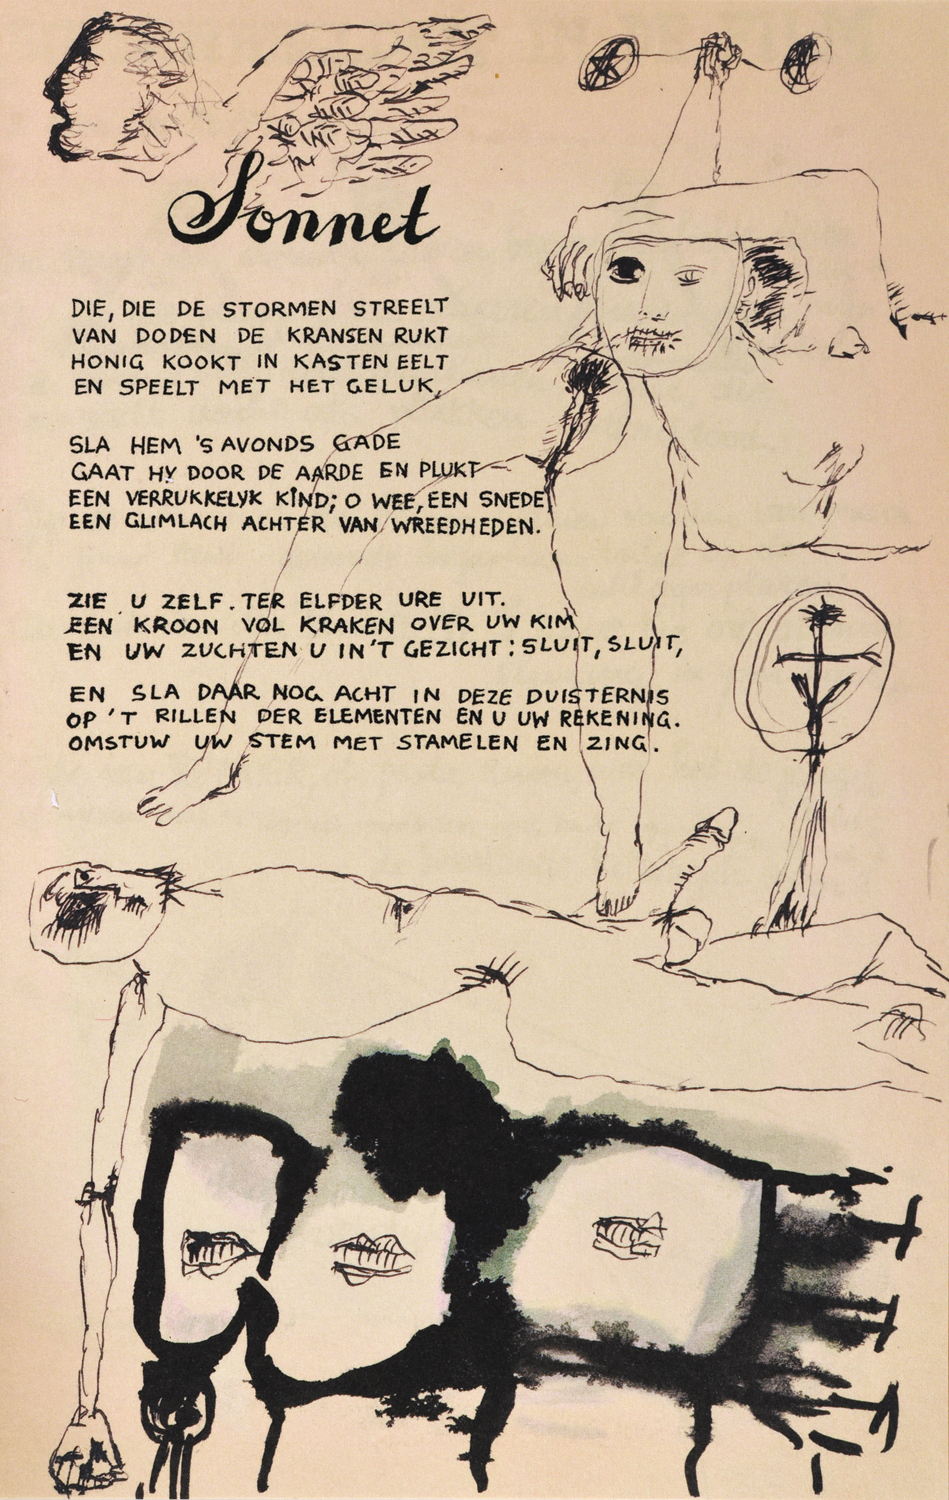 Sonnet
DIE, DIE DE STORMEN STREELT
VAN DODEN DE KRANSEN RUKT
HONIG KOOKT IN KASTEN EELT
EN SPEELT MET HET GELUK,
SLA HEM 'S AVONDS GADE
GAAT HY DOOR DE AARDE EN PLUKT
EEN VERRUKKELYK KIND; O WEE, EEN SNEDE
EEN GLIMLACH ACHTER VAN WREEDHEDEN.
ZIE U ZELF. TER ELFDER URE UIT.
EEN KROON VOL KRAKEN OVER UW KIM
EN UW ZUCHTEN U IN 'T GEZICHT: SLUIT, SLUIT,
EN SLA DAAR NOG ACHT IN DEZE DUISTERNIS
OP 'T RILLEN DER ELEMENTEN EN U UW REKENING.
OMSTUW UW STEM MET STAMELEN EN ZING.